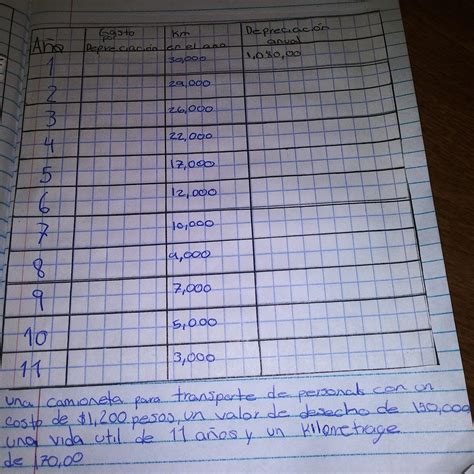 Año Gasto por Depreciación Km en el año Depreciación anual
1 30,000 1,080,00
2 29,000
3 26,000
4 22,000
5 17,000
6 12,000
7 10,000
8 9,000
9 7,000
10 5,000
11 3,000
una camioneta para transporte de personal con un
costo de $1,200 pesos, un valor de desecho de 150,000
una vida util de 11 años y un Kilometrage
de 170,00